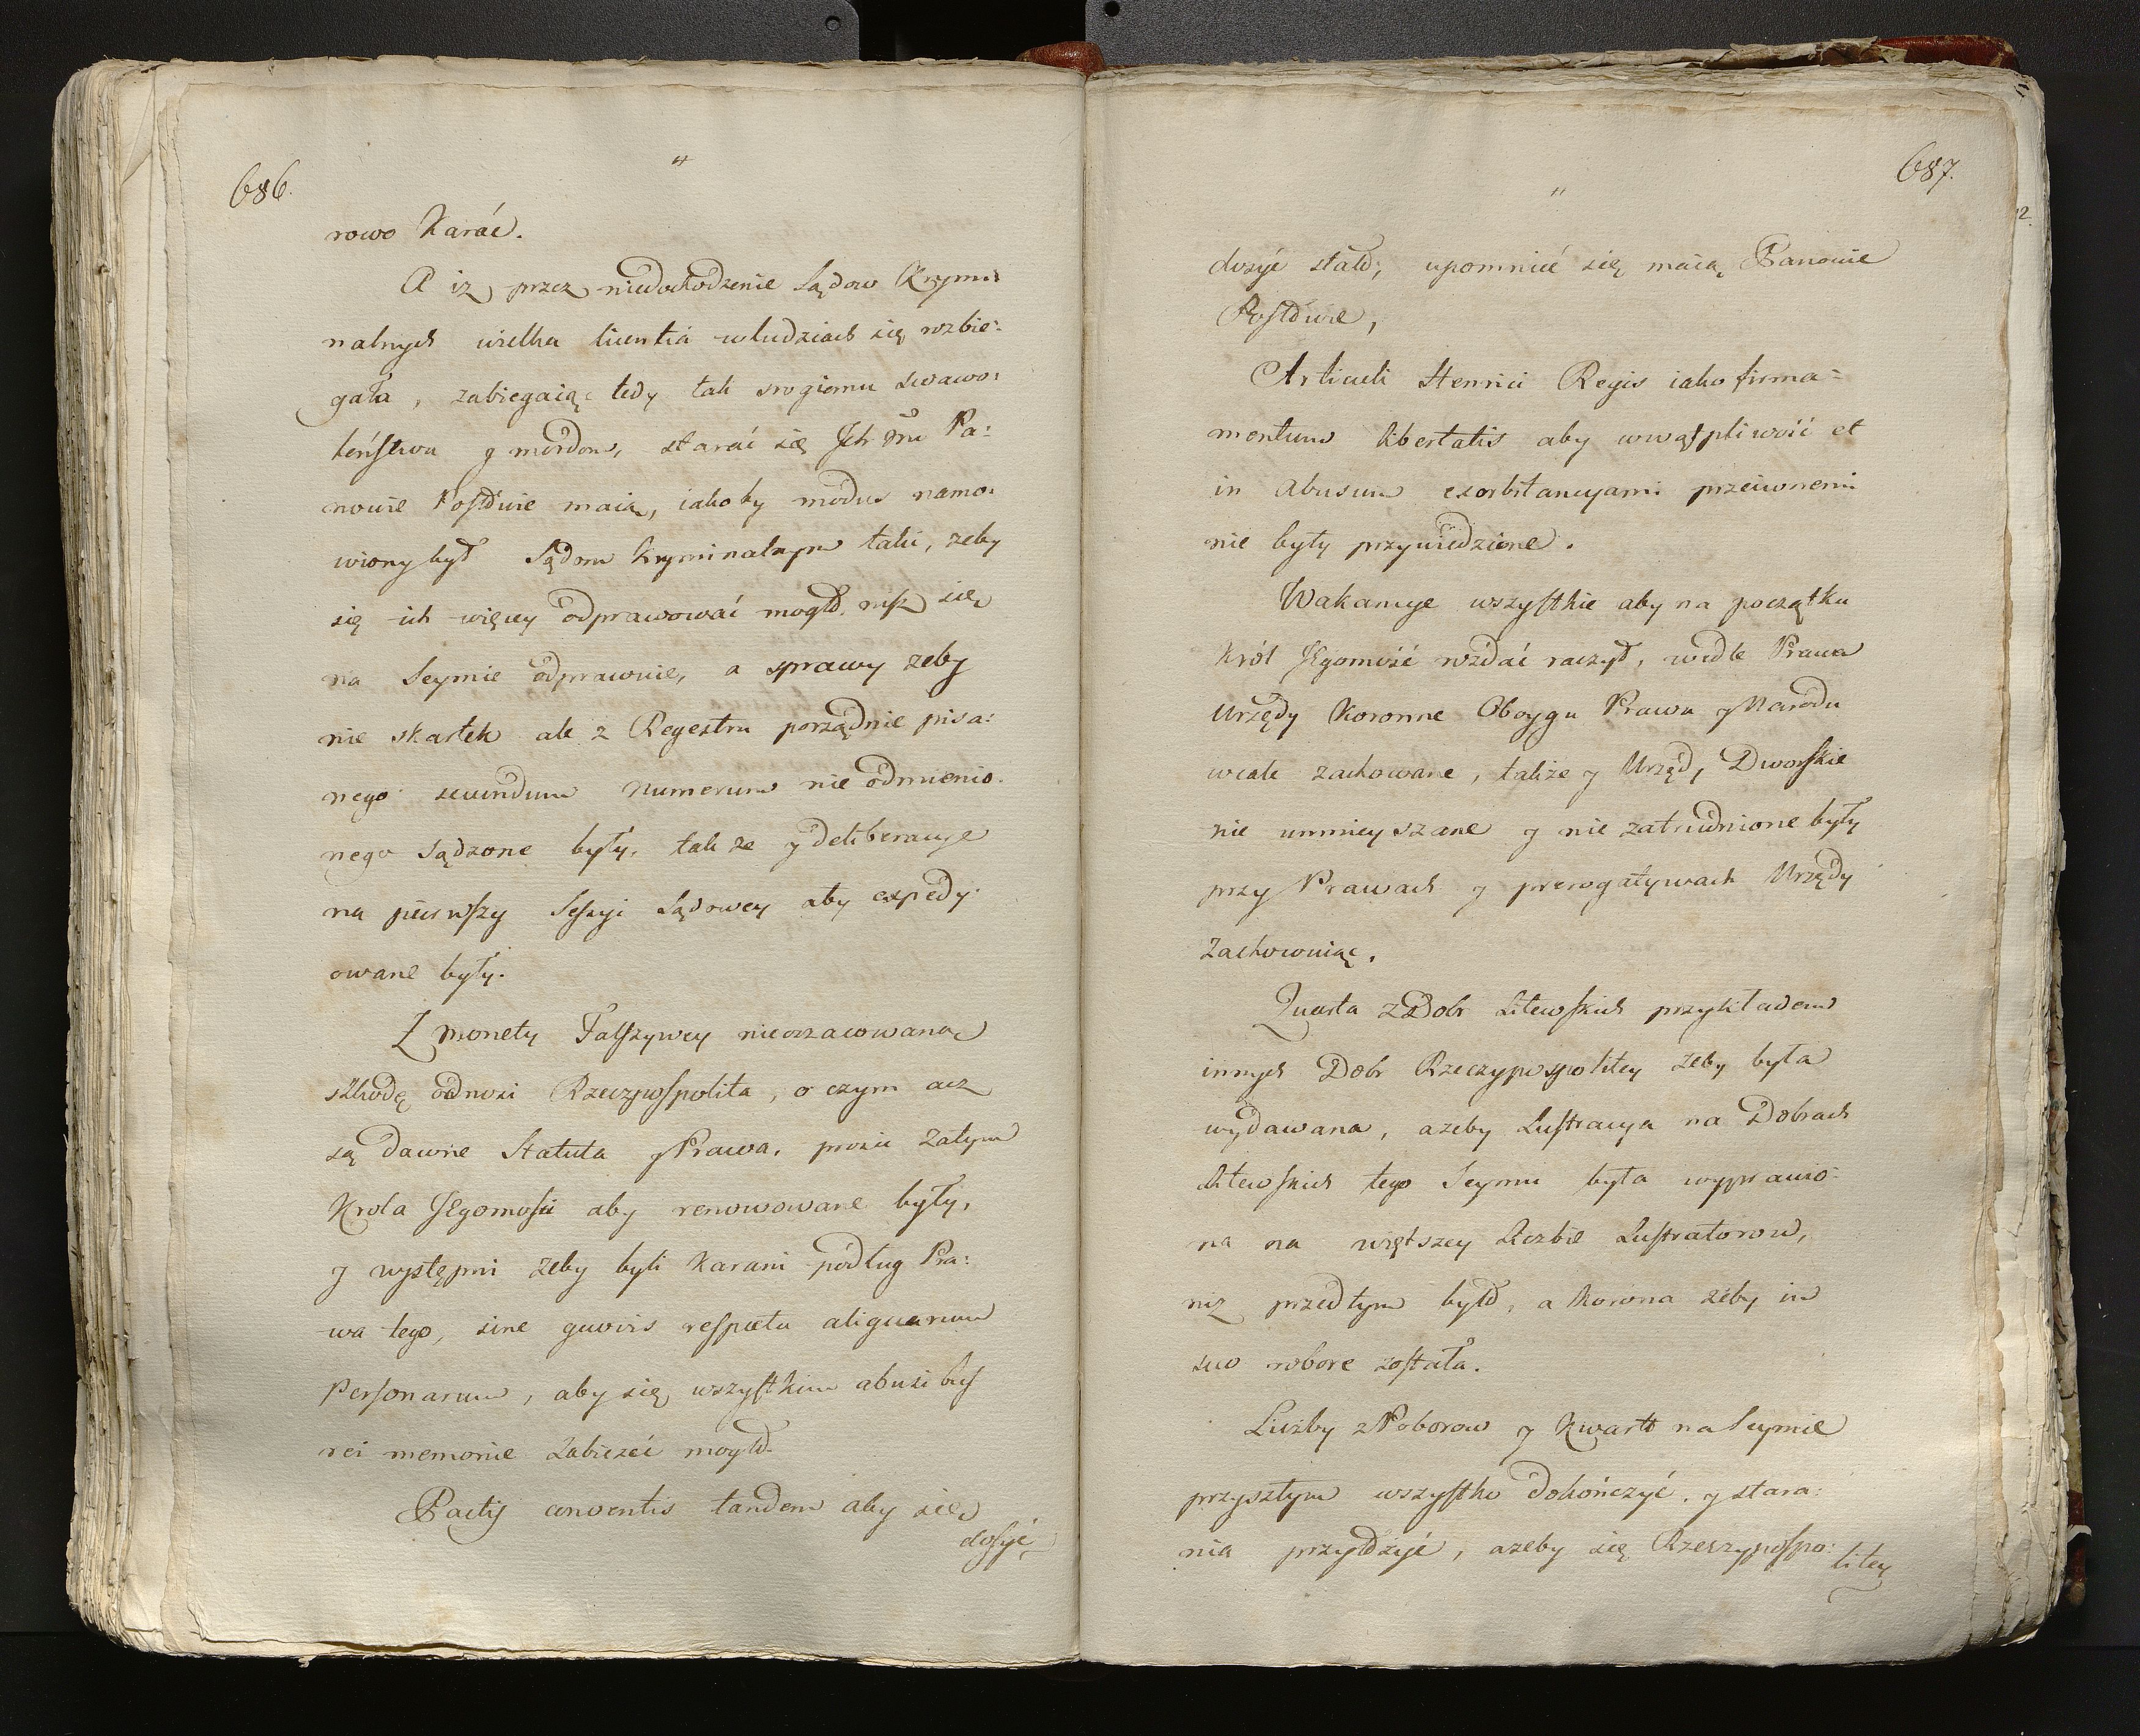 686.
rowo Karác.
A iz przez niedochodzenie Sądow Krymi:
nalnych wielka licentia w ludziach się rozbie:
gała, zabiegaiąc tedy tak srogiemu swawo:
leństwu y mordom, starać się Ich Mm Pa:
nowie Posłowie maią, iakoby modus namo:
wiony był Sądom Kryminalnym taki, zeby
się ich więcey odprawować mogło, niz się
na Seymie odprawuie, a sprawy zeby
nie z kartek ale z Regestru porządnie pisa:
nego secundum numerum nie odmienio:
nego sądzone były, tak ze y deliberacye
na pierwszy Sessyi Sądowey aby expedy:
owane były.
Z monety Fałszywey nieoszacowaną
szkodę odnosi Rzeczpospolita, o czym acz
są dawne Statuta y Prawa, prosić zatym
Krola JEgomości aby renowowane były,
y występni zeby byli karani podług Pra:
wa tego, sine quovis respectu aliquarum
Personarum, aby się wszystkim abusibus
rei memorie zabiezeć mogło.
Pactis conventis tandem aby się
dosyć
687.
dosyć stało, upomnieć się maią Panowie
Posłowie,
Articuli Henrici Regis iako firma:
mentum libertatis aby w wątpliwość et
in abusum exorbitancyami przeciwnemi
nie były przywiedzione.
Wakancye wszystkie aby na początku
Król JEgomość rozdać raczył, wedle Prawa
Urzędy Koronne Oboygu Prawu y Narodu
wcale zachowane, takze y Urzędy Dworskie
nie umnieyszane y nie zatrudnione były
przy Prawach y prerogatywach Urzędy
Zachowuiąc.
Quarta z Dobr Litewskich przykładem
innych Dobr Rzeczypospolitey zeby była
wydawana, azeby Lustracya na Dobrach
Litewskich tego Seymu była wyprawio:
na na większey Liczbie Lustratorow,
niz przedtym było, a Korona zeby in
suo robore została.
Liczby z Poborow y Kwart na Seymie
przyszłym wszystko dokończyć, y stara:
nia przyłozyć, azeby się Rzeczypospo:
litey